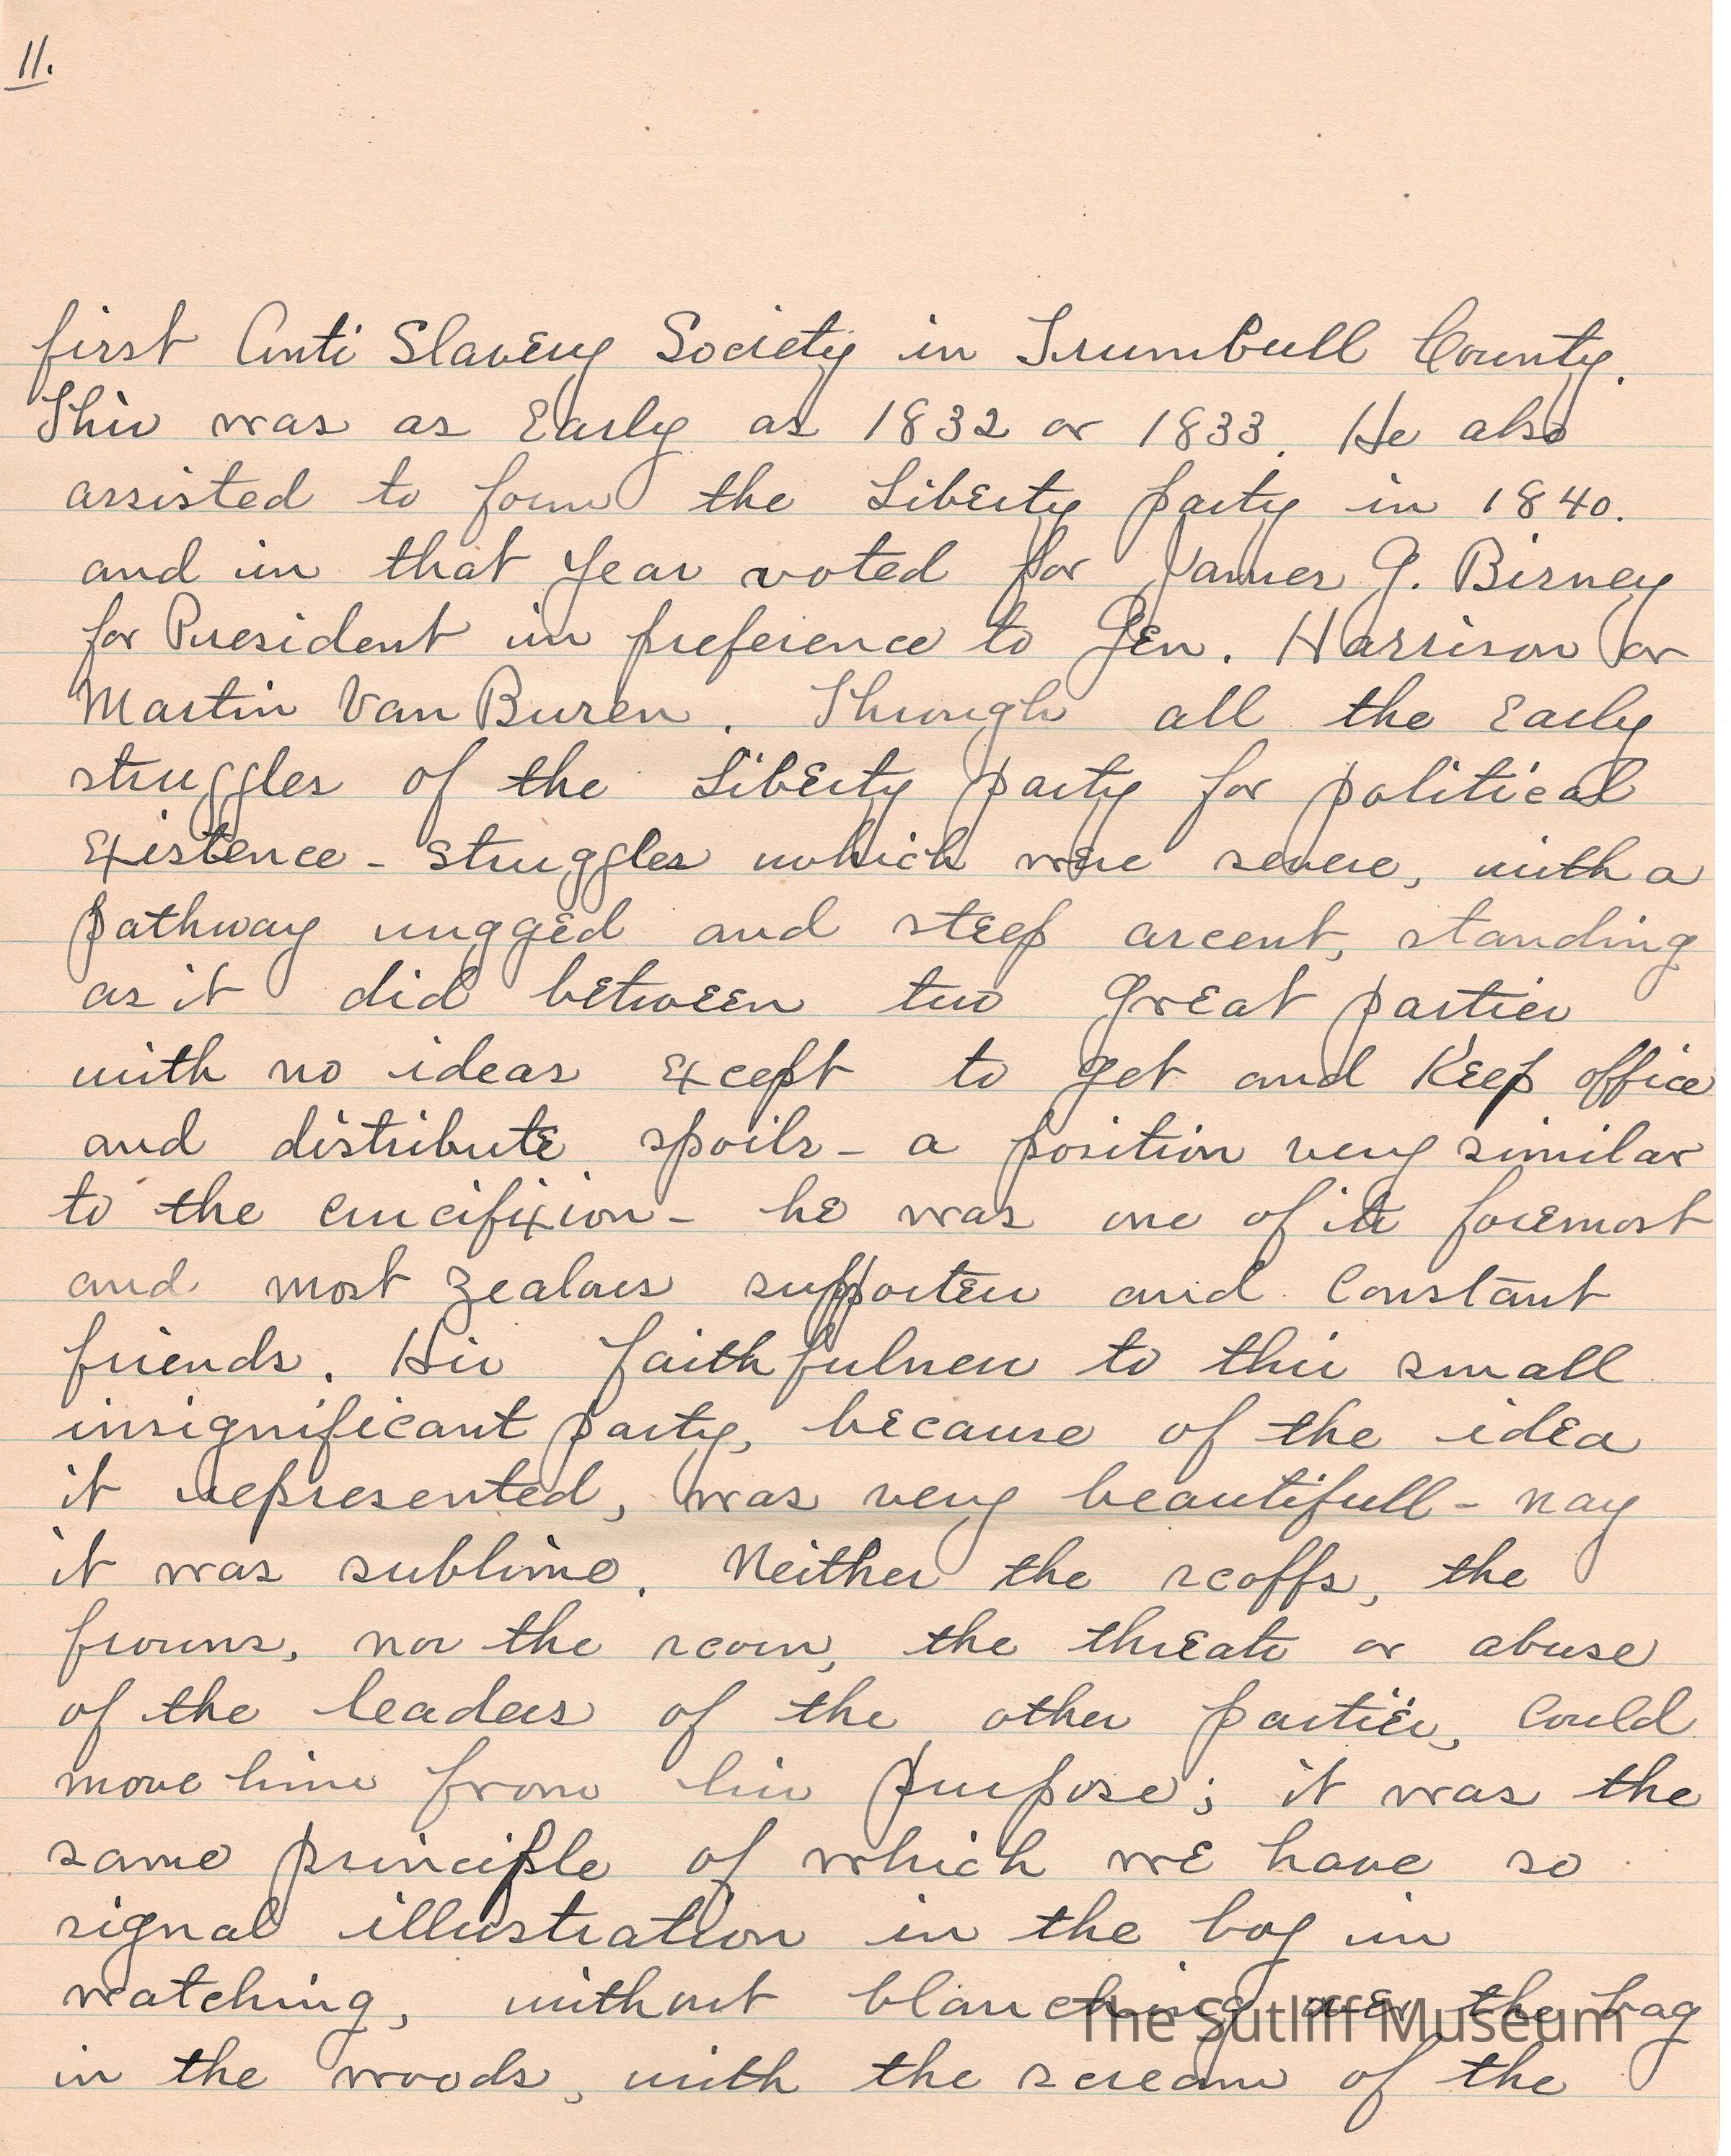 11.
first Anti Slavery Society in Trumbull County.
This was as Early as 1832 or 1833. He also
assisted to form the Liberty party in 1840.
and in that year voted for James G. Birney
for President in preference to Gen. Harrison or
Martin Van Buren. Through all the Early
struggles of the Liberty party for political
Existence - struggles which were severe, with a
pathway rugged and steep ascent, standing
as it did between two great parties
with no ideas Except to get and Keep office
and distribute spoils - a position very similar
to the crucifixion - he was one of its foremost
and most zealous supporters and Constant
friends. His faithfulness to this small
insignificant party, because of the idea
it represented, was very beautifull - nay
it was sublime. Neither the scoffs, the
frowns, nor the scorn, the threats or abuse
of the leaders of the other parties, Could
move him from his purpose; it was the
same principle of which we have so
signal illustration in the boy in
watching, without blanching over the bag
in the woods, with the scream of the
The Sutliff Museum